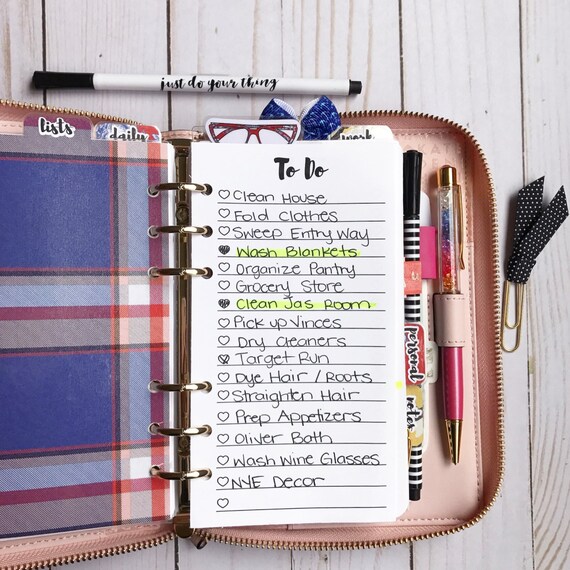 just do your thing
lists
daily
work
To Do
Clean House
Fold Clothes
Sweep Entry Way
Wash Blankets
Organize Pantry
Grocery Store
Clean Jas Room
Pick up Vinces
Dry Cleaners
Target Run
Dye Hair / Roots
Straighten Hair
Prep Appetizers
Oliver Bath
Wash Wine Glasses
NYE Decor
personal
notes